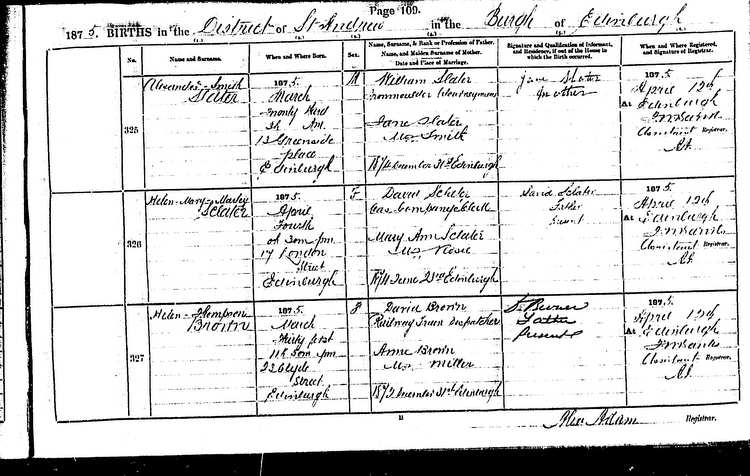 Page 109.
1875. BIRTHS in the District of St Andrew in the Burgh of Edinburgh
No.
Name and Surname.
When and Where Born.
Sex.
Name, Surname, & Rank or Profession of Father.
Name, and Maiden Surname of Mother.
Date and Place of Marriage.
Signature and Qualification of Informant,
and Residence, if out of the House in
which the Birth occurred.
When and Where Registered,
and Signature of Registrar.
325
Alexander Smith
Slater
1875.
March
Twenty third
3h Am.
13 Greenside
place
Edinburgh
M
William Slater
Ironmoulder Journeyman
Jane Slater
M.S. Smith
1874 December 31st Edinburgh
Jane Slater
Mother
1875.
April 12th
At Edinburgh
Assistant Registrar.
326
Helen Mary
Sclater
1875.
April
Fourth
0h 30m pm.
17 London
Street
Edinburgh
F
David Sclater
Gas Company's Clerk
Mary Ann Sclater
M.S. Rosie
1874 June 23rd Edinburgh
David Sclater
Father
Present
1875.
April 12th
At Edinburgh
Assistant Registrar.
327
Helen Thompson
Brown
1875.
March
Thirty first
11h 30m pm
22 Clyde
Street
Edinburgh
F
David Brown
Railway Train Despatcher
Anne Brown
M.S. Miller
1872 December 31st Edinburgh
D. Brown
Father
Present
1875.
April 12th
At Edinburgh
Assistant Registrar.
Alex Adam Registrar.